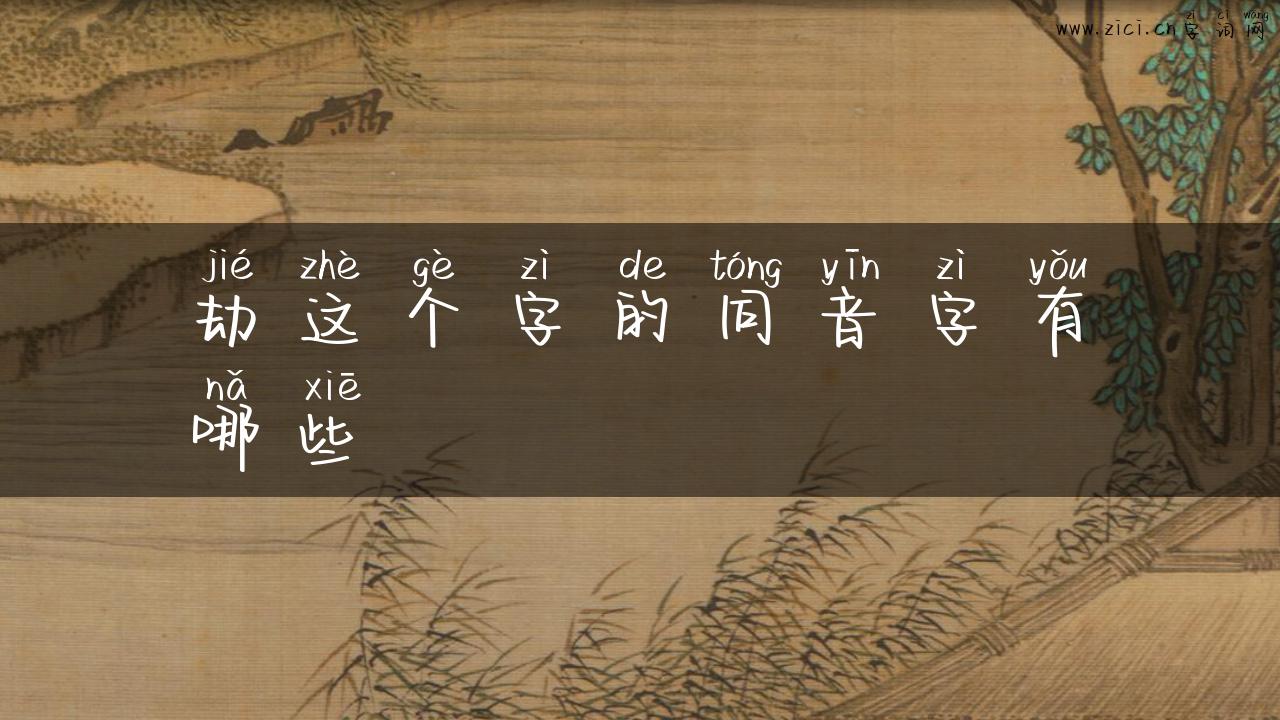 zì cí wǎng
www.zici.cn字词网
jié zhè gè zì de tóng yīn zì yǒu
劫这个字的同音字有
nǎ xiē
哪些